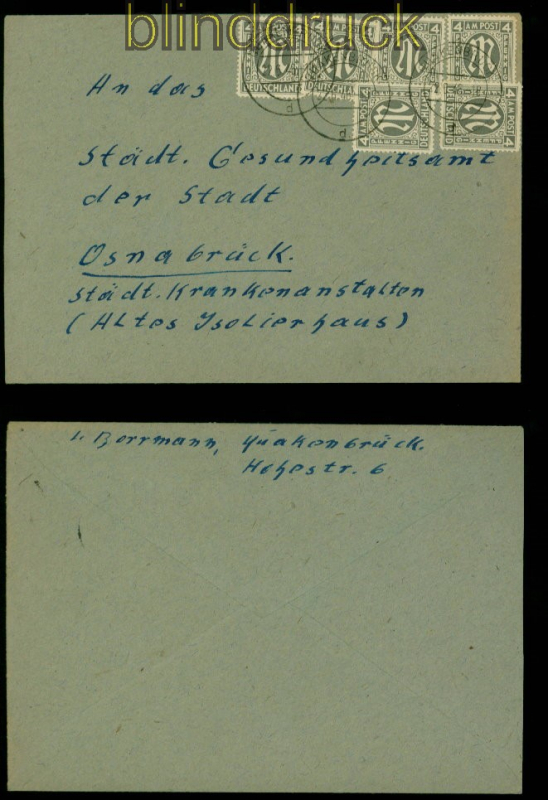 blinddruck
4 AM POST 4
DEUTSCHLAND
An das
Städt. Gesundheitsamt
der Stadt
Osnabrück.
Städt. Krankenanstalten
(Altes Isolierhaus)
Borrmann, Quakenbrück.
Hohestr. 6